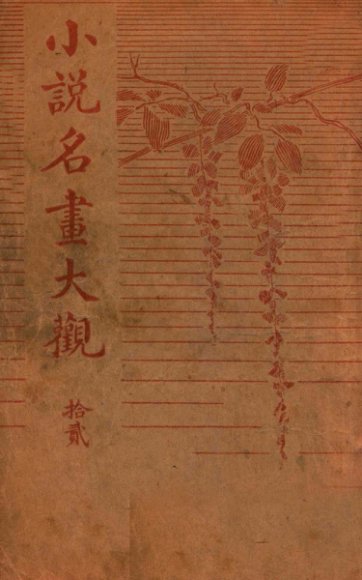 小説名畫大觀
拾貳